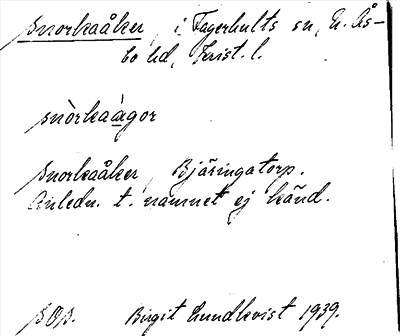 Snorkaåker, i Fagerhults sn, N. Ås-
bo hd, Krist. l.
snòrkaágor
Snorkaåker, Bjäringatorp.
Anledn. t. namnet ej känd.
Birgit Lundkvist 1939.